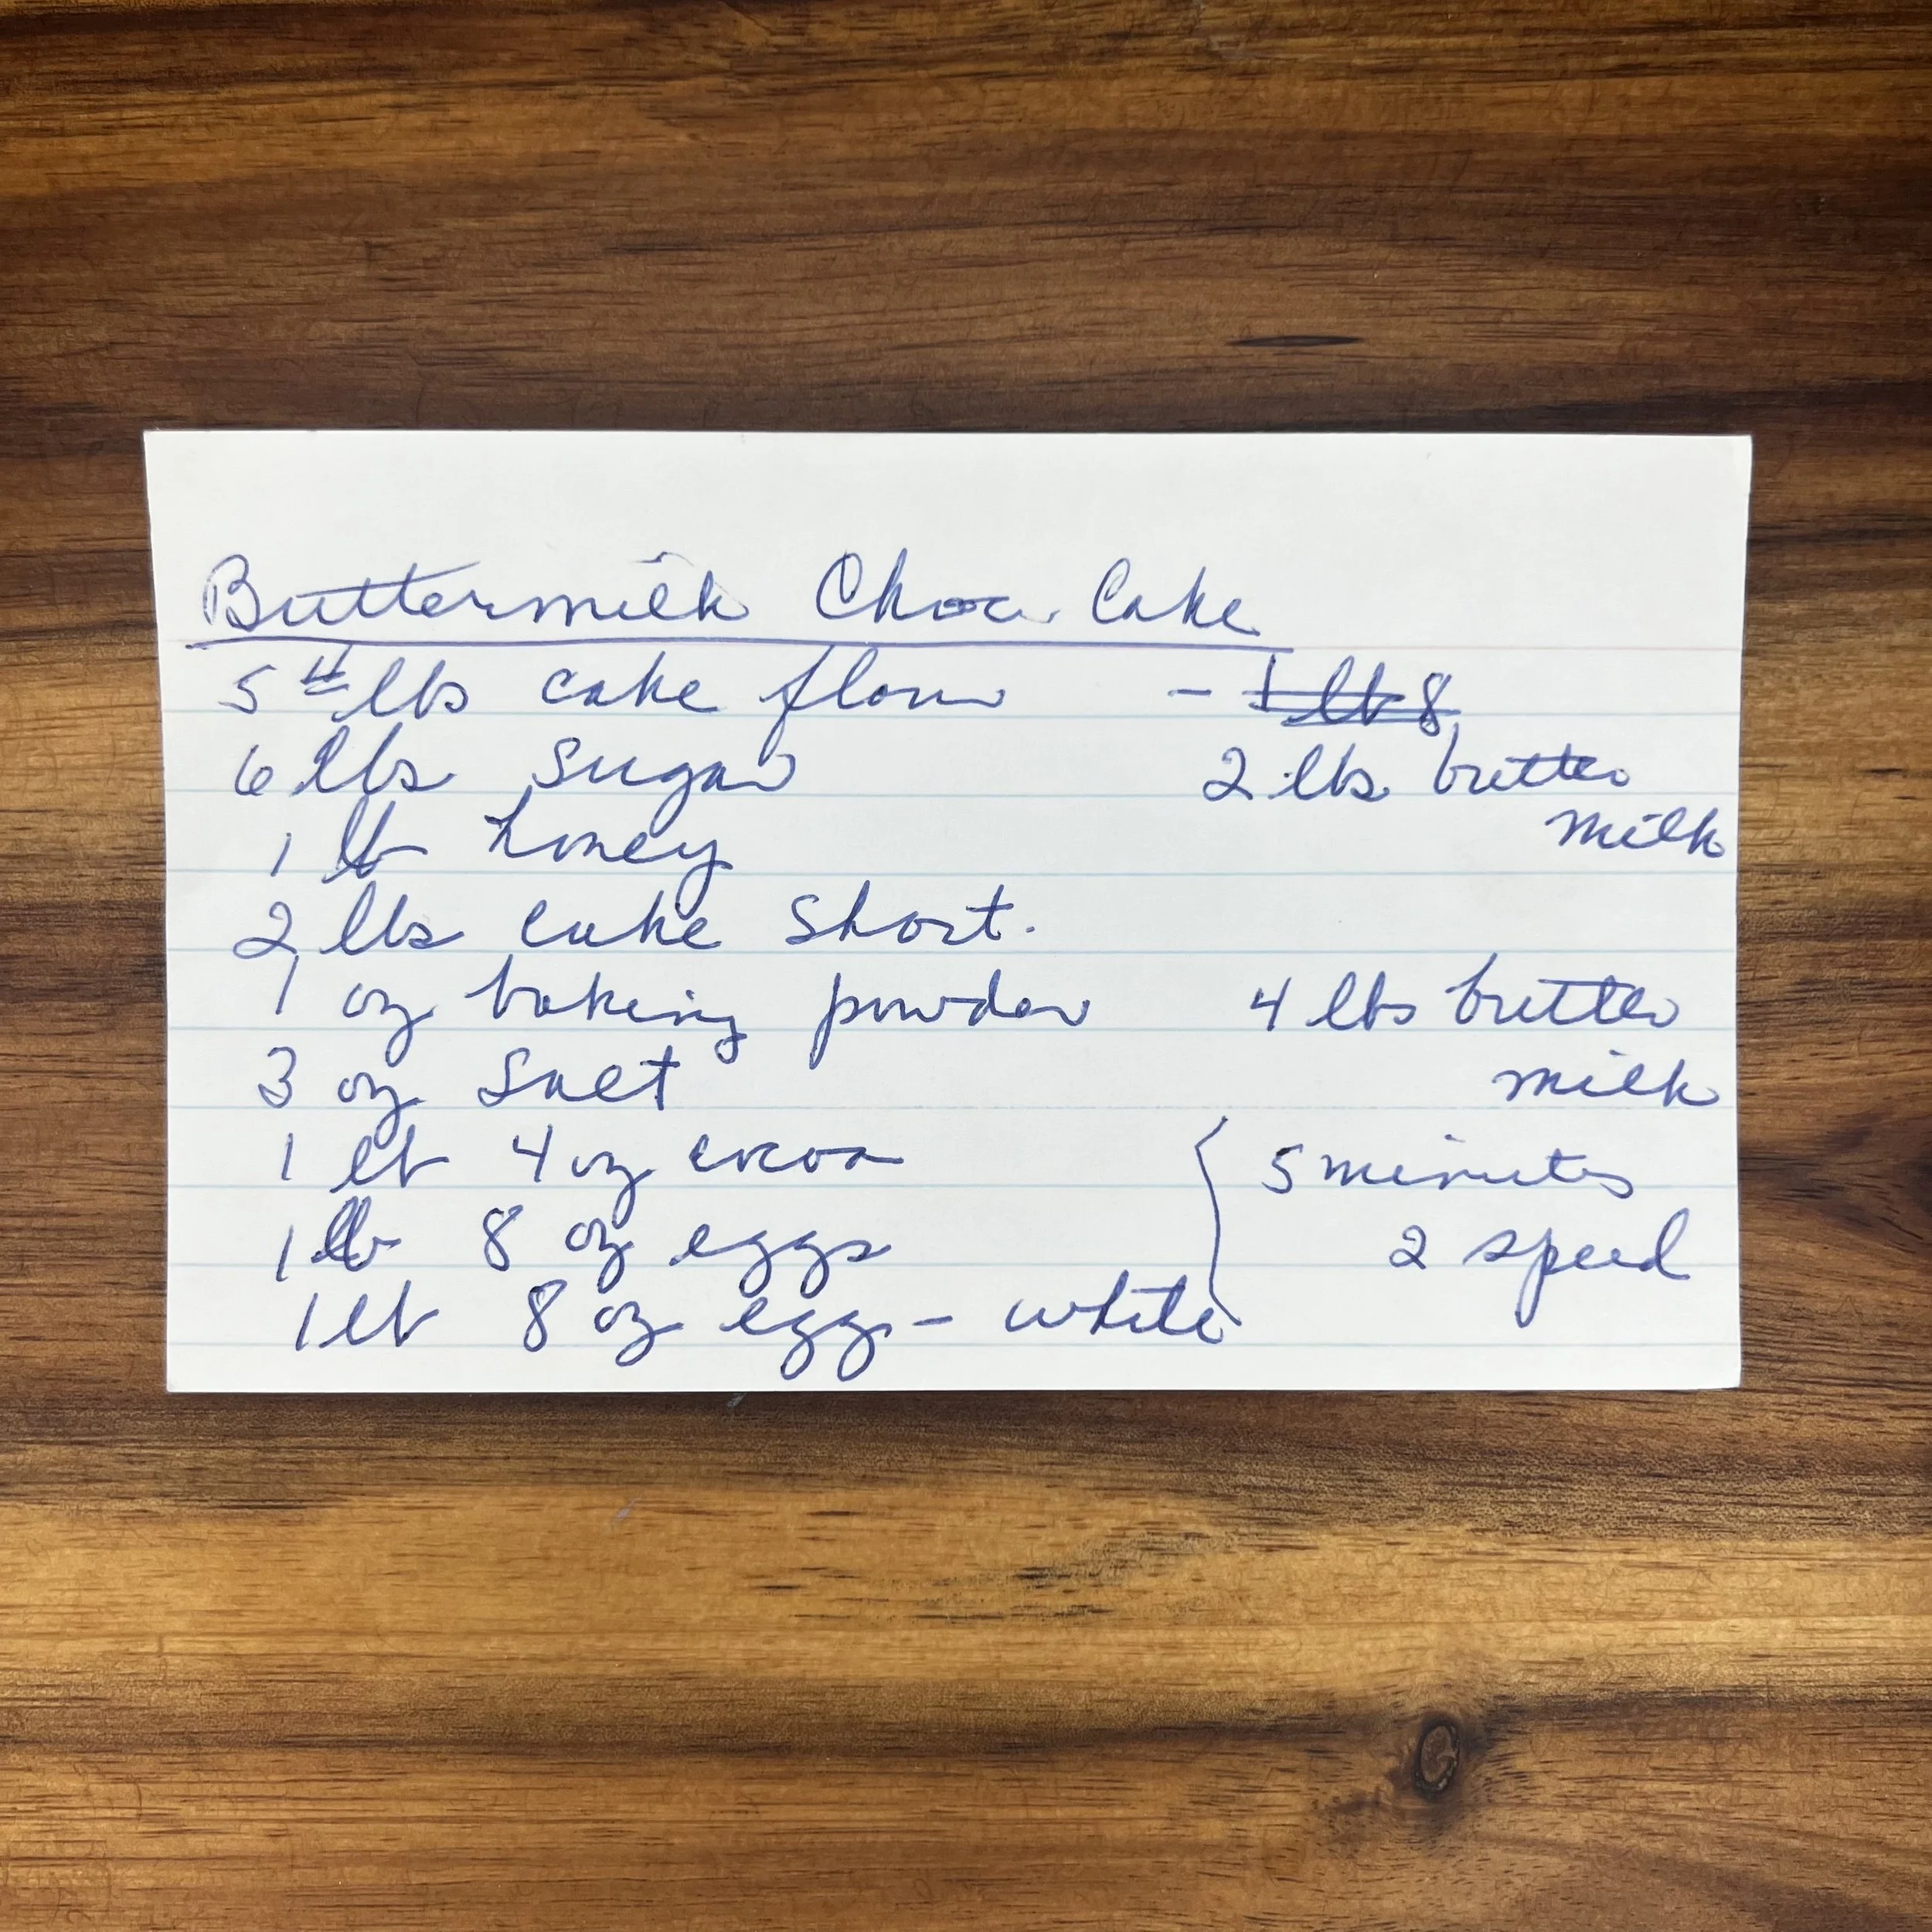 Buttermilk Choc. Cake
5 # lbs cake flour - 1 lb 8
6 lbs sugar 2 lbs butter
milk
1 lb honey
2 lbs cake short.
1 oz baking powder 4 lbs butter
3 oz salt milk
1 lb 4 oz cocoa 5 minutes
1 lb 8 oz eggs 2 speed
1 lb 8 oz egg - white